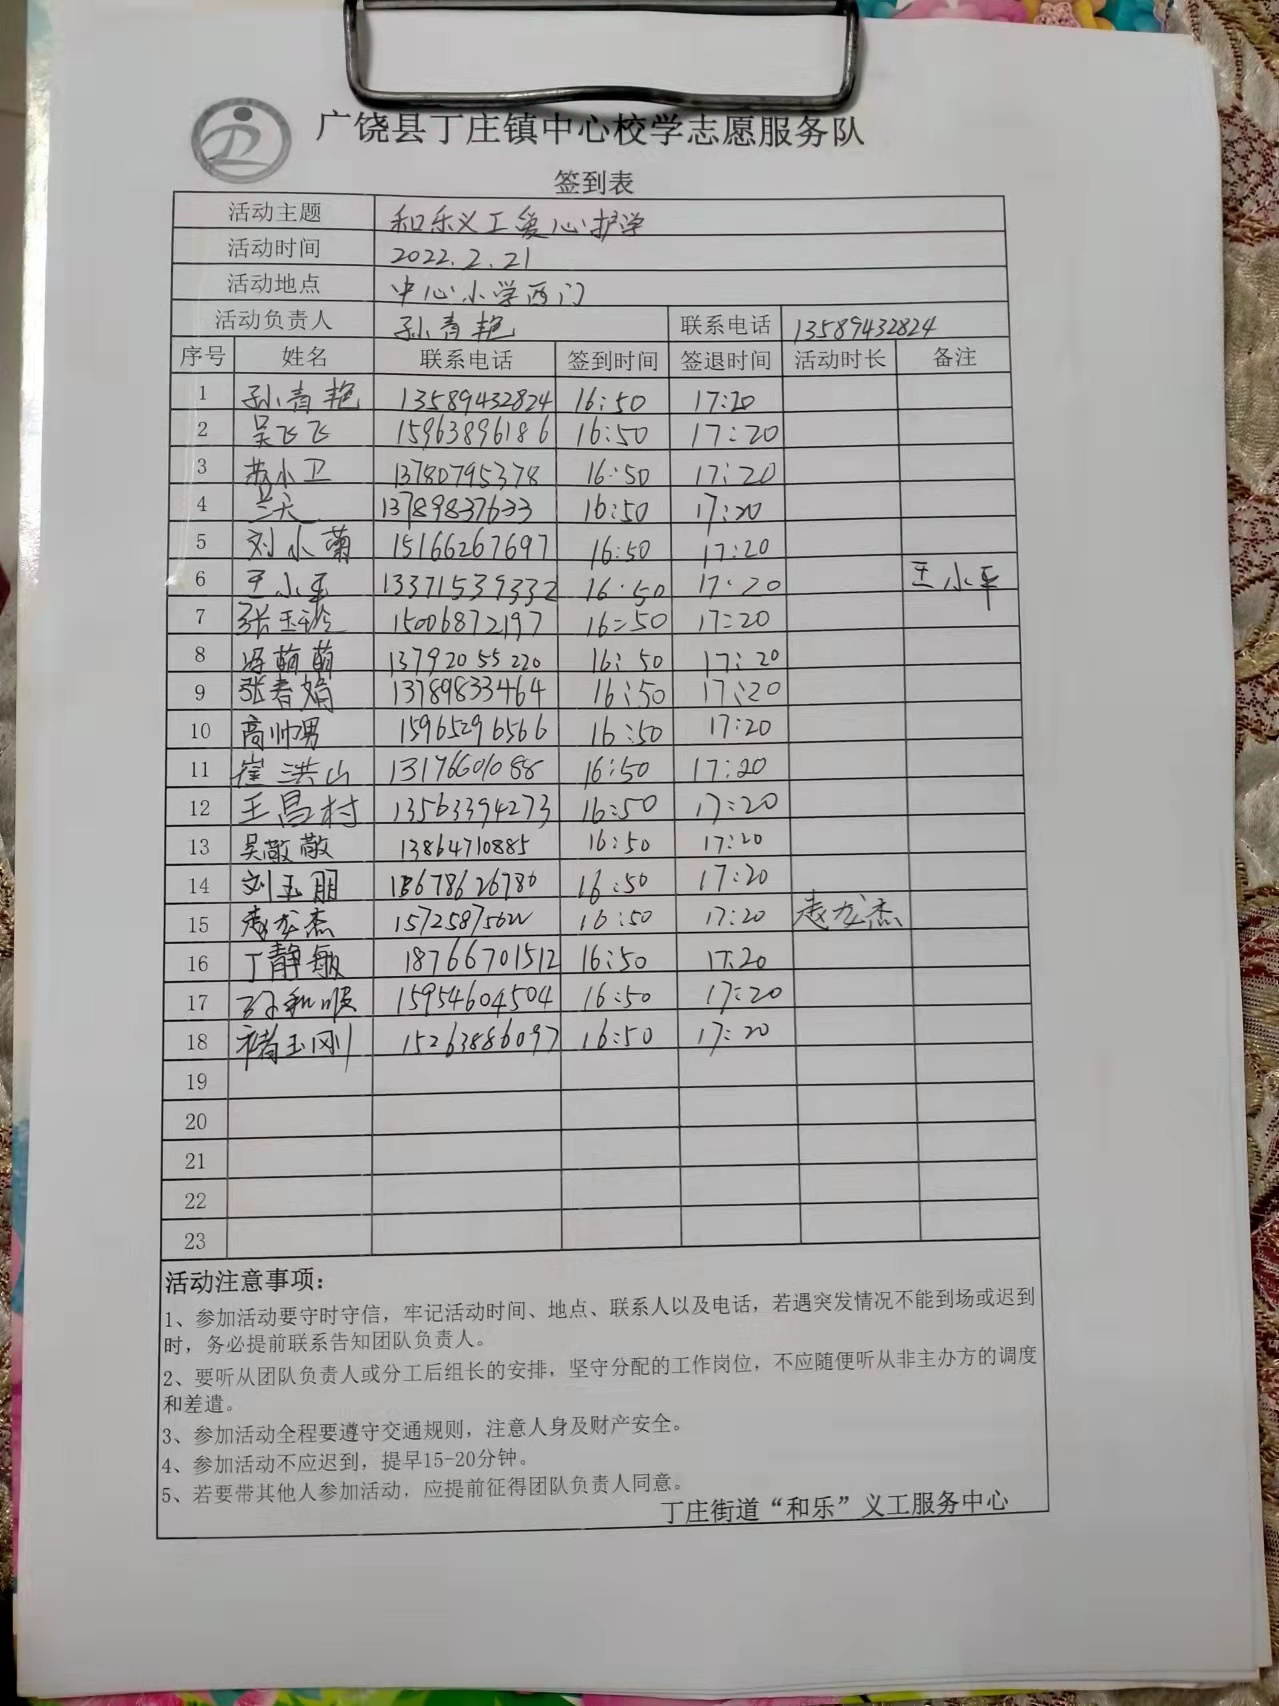 广饶县丁庄镇中心校学志愿服务队
签到表
活动主题 和乐义工爱心护学
活动时间 2022.2.21
活动地点 中心小学西门
活动负责人 孙青艳 联系电话 13589432824
序号 姓名 联系电话 签到时间 签退时间 活动时长 备注
1 孙青艳 13589432824 16:50 17:20
2 吴飞飞 15963896186 16:50 17:20
3 苏小卫 13780795378 16:50 17:20
4 兰天 13789837633 16:50 17:20
5 刘小菊 15166267697 16:50 17:20
6 王小平 13371539332 16:50 17:20 王小平
7 张玉玲 15006872197 16:50 17:20
8 冯萌萌 13792055220 16:50 17:20
9 张春娟 13789833464 16:50 17:20
10 高帅男 15965296566 16:50 17:20
11 崔洪山 13176601088 16:50 17:20
12 王昌村 13563394273 16:50 17:20
13 吴敬敬 13864710885 16:50 17:20
14 刘玉朋 16:50 17:20
15 赵龙杰 16:50 17:20 赵龙杰
16 丁静敏 18766701512 16:50 17:20
17 孙和顺 15954604504 16:50 17:20
18 褚玉刚 15263886097 16:50 17:20
19
20
21
22
23
活动注意事项：
1、参加活动要守时守信，牢记活动时间、地点、联系人以及电话，若遇突发情况不能到场或迟到
时，务必提前联系告知团队负责人。
2、要听从团队负责人或分工后组长的安排，坚守分配的工作岗位，不应随便听从非主办方的调度
和差遣。
3、参加活动全程要遵守交通规则，注意人身及财产安全。
4、参加活动不应迟到，提早15-20分钟。
5、若要带其他人参加活动，应提前征得团队负责人同意。
丁庄街道“和乐”义工服务中心